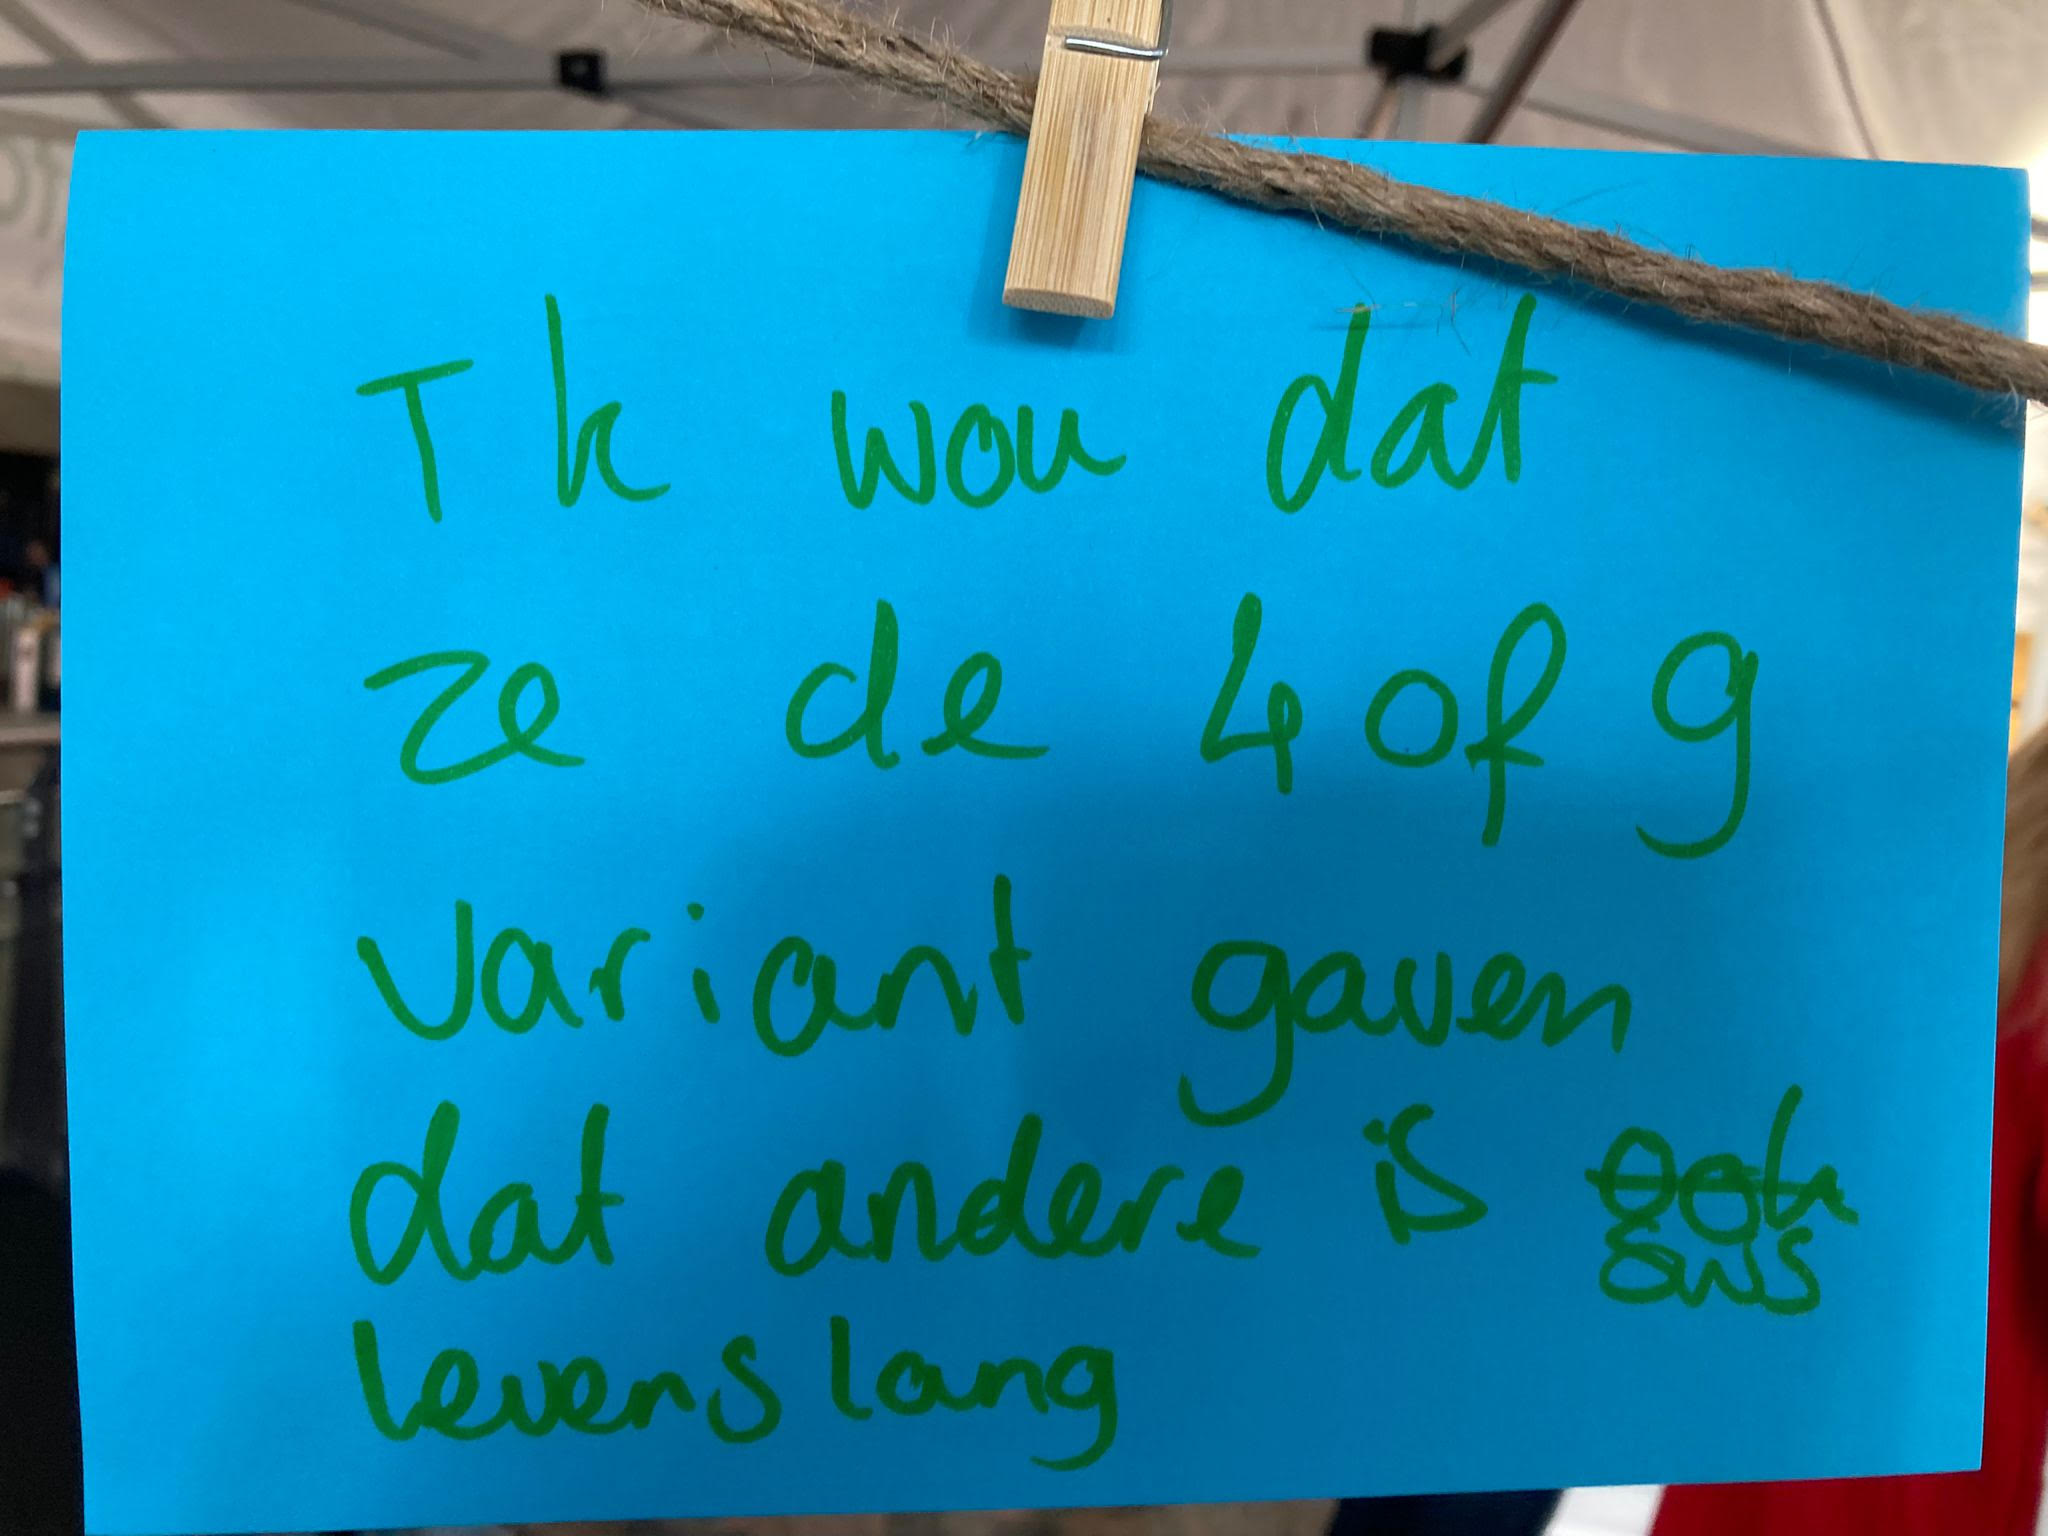 Ik wou dat
ze de 4 of 9
variant gaven
dat andere is ook
ons
levenslang